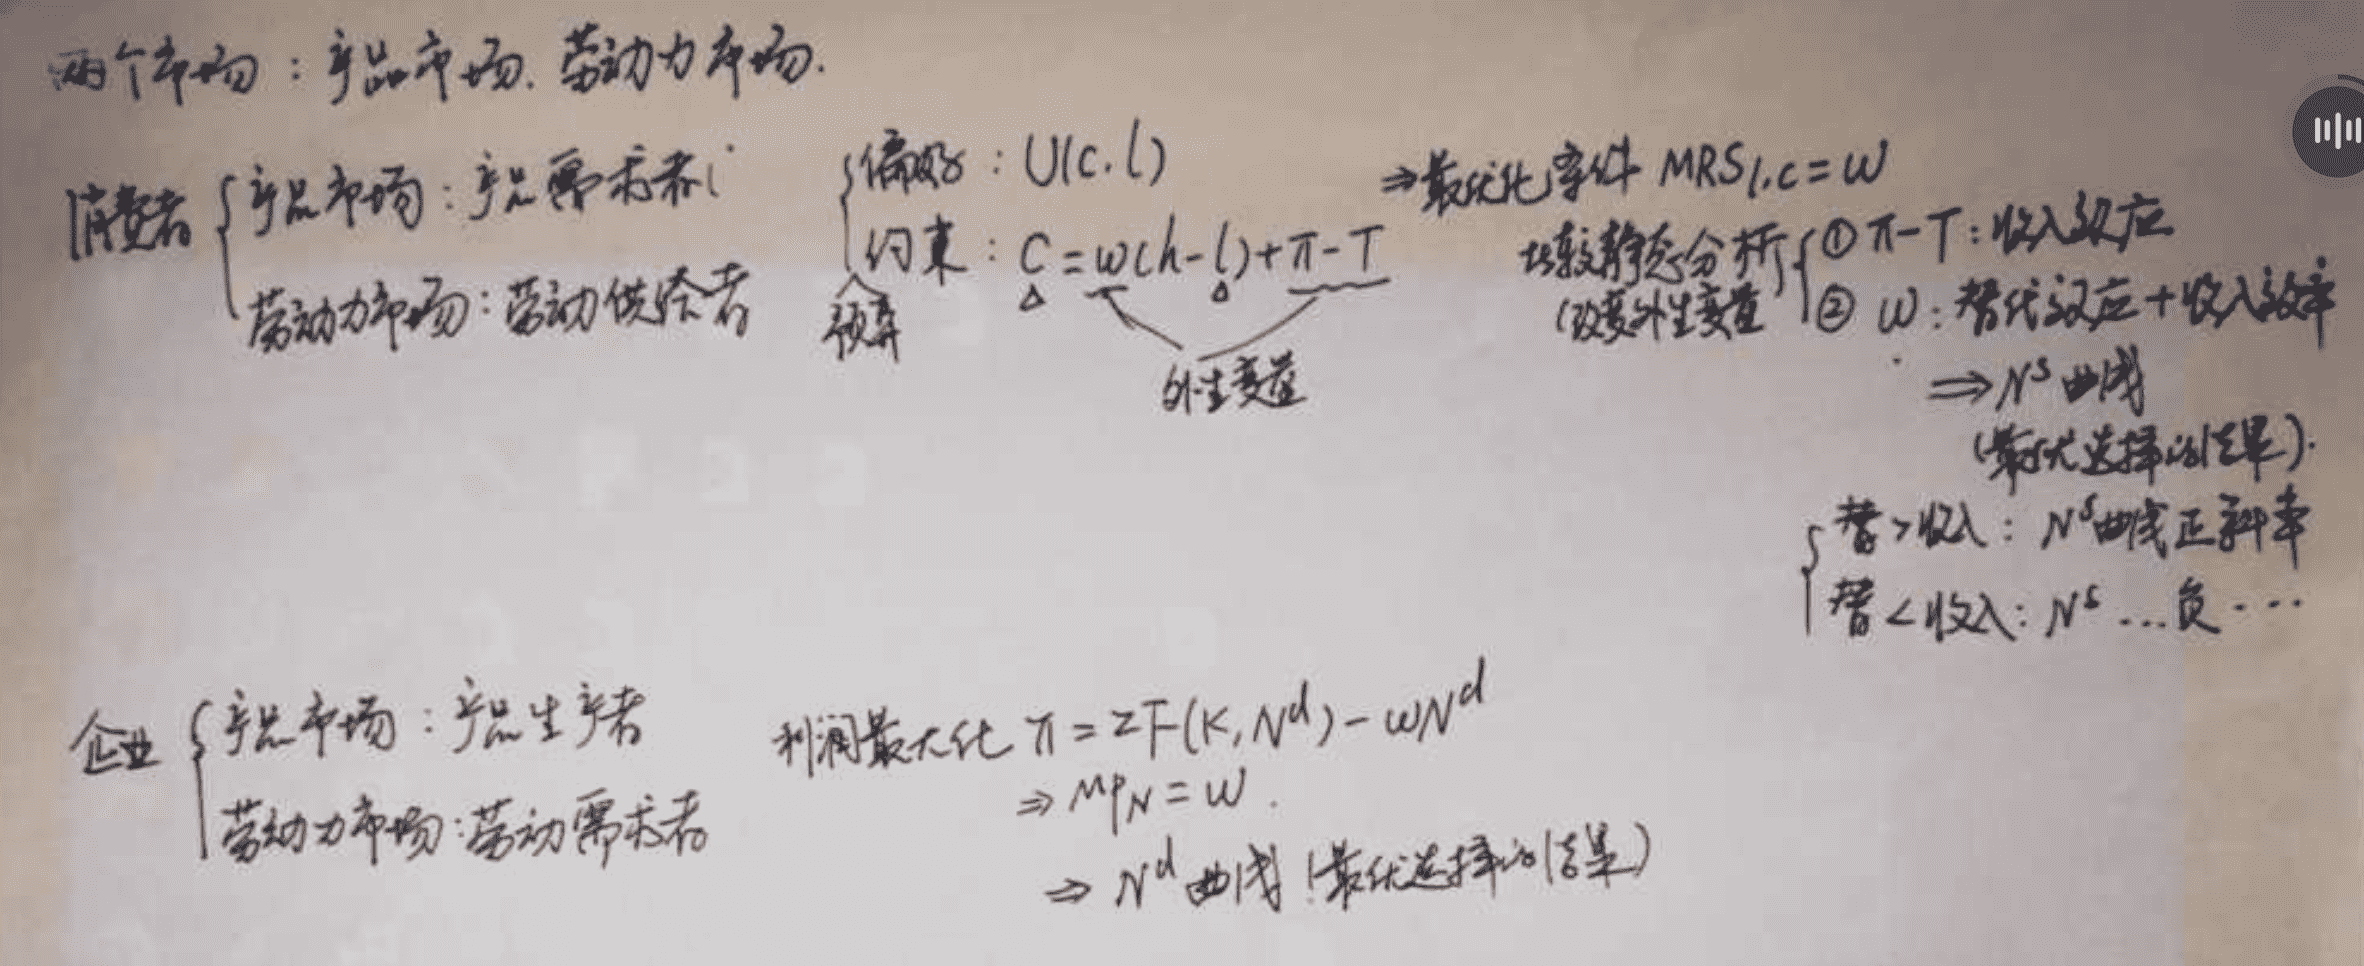 两个市场：产品市场.劳动力市场.
消费者
产品市场：产品需求者
劳动力市场：劳动供给者
偏好：U(c.l)
约束：C=w(h-l)+π-T
预算
外生变量
⇒最优化条件 MRSl,c=w
比较静态分析
(改变外生变量
① π-T：收入效应
② w：替代效应+收入效率
⇒Nˢ曲线
(最优选择的结果).
替>收入：Nˢ曲线正斜率
替<收入：Nˢ...负...
企业
产品市场：产品生产者
劳动力市场:劳动需求者
利润最大化 π=zF(K,Nᵈ)-wNᵈ
⇒MPN=w.
⇒Nᵈ曲线(最优选择的结果)